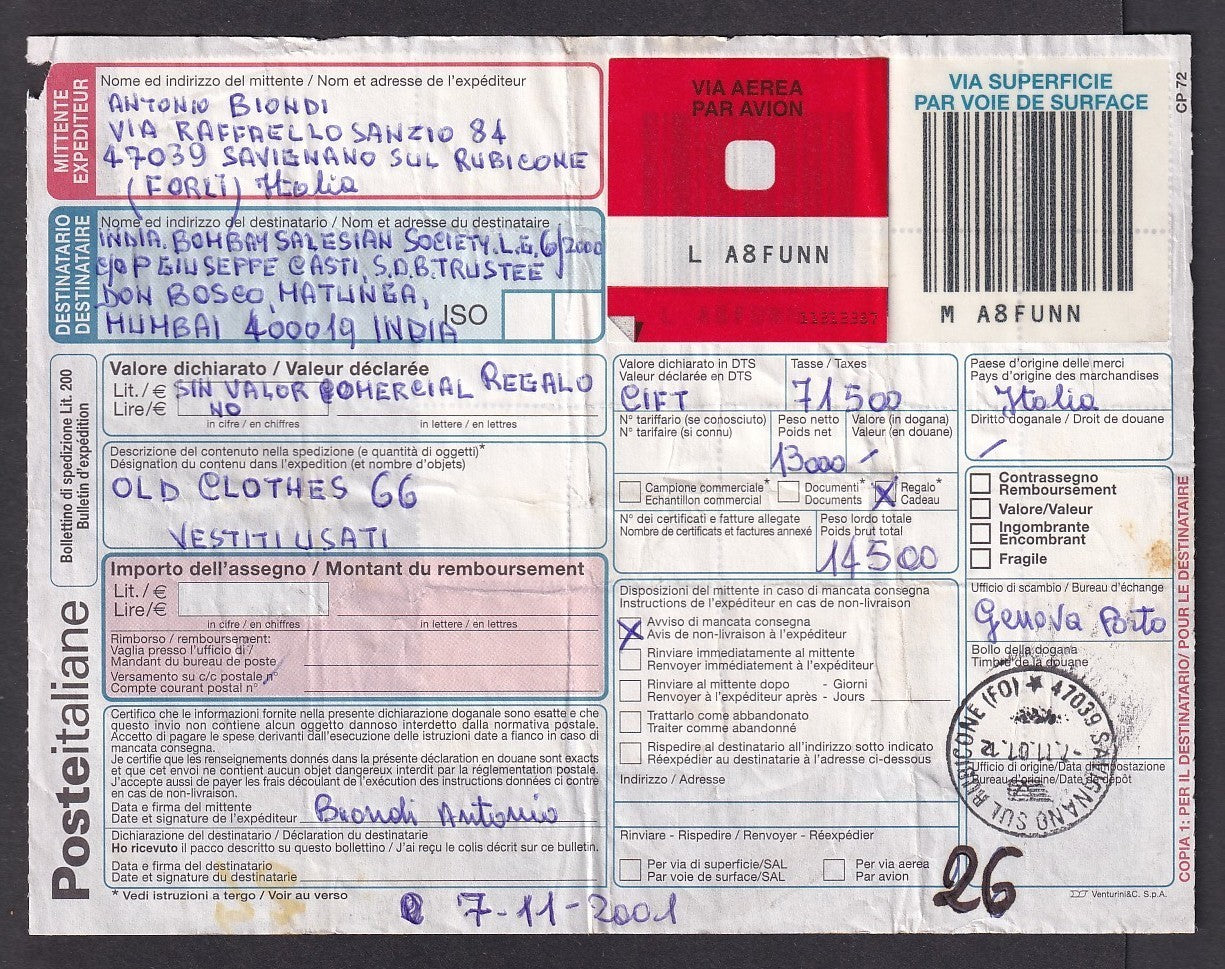 MITTENTE
EXPEDITEUR
Nome ed indirizzo del mittente / Nom et adresse de l'expéditeur
ANTONIO BIONDI
VIA RAFFAELLO SANZIO 84
47039 SAVIGNANO SUL RUBICONE
(FORLÌ) Italia
VIA AEREA
PAR AVION
L A8FUNN
VIA SUPERFICIE
PAR VOIE DE SURFACE
M A8FUNN
CP 72
DESTINATARIO
DESTINATAIRE
Nome ed indirizzo del destinatario / Nom et adresse du destinataire
INDIA. BOMBAY SALESIAN SOCIETY. L.G. 6/2000
c/o P GIUSEPPE CASTI, S.D.B. TRUSTEE
DON BOSCO, MATUNGA,
MUMBAI 400019 INDIA
ISO
Bollettino di spedizione Lit. 200
Bulletin d'expédition
Valore dichiarato / Valeur déclarée
Lit./ € SIN VALOR COMERCIAL REGALO
Lire/€ NO
in cifre / en chiffres
in lettere / en lettres
Descrizione del contenuto nella spedizione (e quantità di oggetti)*
Désignation du contenu dans l'expedition (et nombre d'objets)
OLD CLOTHES 66
VESTITI USATI
Importo dell'assegno / Montant du remboursement
Lit./ €
Lire/€
in cifre / en chiffres
in lettere / en lettres
Rimborso / remboursement:
Vaglia presso l'ufficio di /
Mandant du bureau de poste
Versamento su c/c postale n°
Compte courant postal n°
Certifico che le informazioni fornite nella presente dichiarazione doganale sono esatte e che
questo invio non contiene alcun oggetto dannoso interdetto dalla normativa postale.
Accetto di pagare le spese derivanti dall'esecuzione delle istruzioni date a fianco in caso di
mancata consegna.
Je certifie que les renseignements donnés dans la présente déclaration en douane sont exacts
et que cet envoi ne contient aucun objet dangereux interdit par la réglementation postale.
J'accepte aussi de payer les frais découlant de l'exécution des instructions données ci contre
en cas de non-livraison.
Data e firma del mittente
Date et signature de l'expéditeur Biondi Antonio
Dichiarazione del destinatario / Déclaration du destinatarie
Ho ricevuto il pacco descritto su questo bollettino / J'ai reçu le colis décrit sur ce bulletin.
Data e firma del destinatario
Date et signature du destinatarie
* Vedi istruzioni a tergo / Voir au verso
Posteitaliane
Valore dichiarato in DTS
Valeur déclarée en DTS
GIFT
Tasse / Taxes
71500
Paese d'origine delle merci
Pays d'origine des marchandises
Italia
N° tariffario (se conosciuto)
N° tarifaire (si connu)
Peso netto
Poids net
13000
Valore (in dogana)
Valeur (en douane)
Diritto doganale / Droit de douane
Campione commerciale*
Echantillon commercial
Documenti*
Documents
X Regalo*
Cadeau
N° dei certificati e fatture allegate
Nombre de certificats et factures annexé
Peso lordo totale
Poids brut total
14500
Contrassegno
Remboursement
Valore/Valeur
Ingombrante
Encombrant
Fragile
Disposizioni del mittente in caso di mancata consegna
Instructions de l'expéditeur en cas de non-livraison
X Avviso di mancata consegna
Avis de non-livraison à l'expéditeur
Rinviare immediatamente al mittente
Renvoyer immédiatement à l'expéditeur
Rinviare al mittente dopo - Giorni
Renvoyer à l'expéditeur après - Jours
Trattarlo come abbandonato
Traiter comme abandonné
Rispedire al destinatario all'indirizzo sotto indicato
Réexpédier au destinatarie à l'adresse ci-dessous
Indirizzo / Adresse
Rinviare - Rispedire / Renvoyer - Réexpédier
Per via di superficie/SAL
Par voie de surface/SAL
Per via aerea
Par avion
Ufficio di scambio / Bureau d'échange
Genova Porto
Bollo della dogana
Timbre de la douane
47039 SAVIGNANO SUL RUBICONE (FO)
-7.11.01.12
Ufficio di origine/Data di impostazione
Bureau d'origine/Date de dépôt
COPIA 1: PER IL DESTINATARIO/ POUR LE DESTINATAIRE
26
Venturini&C. S.p.A.
7-11-2001